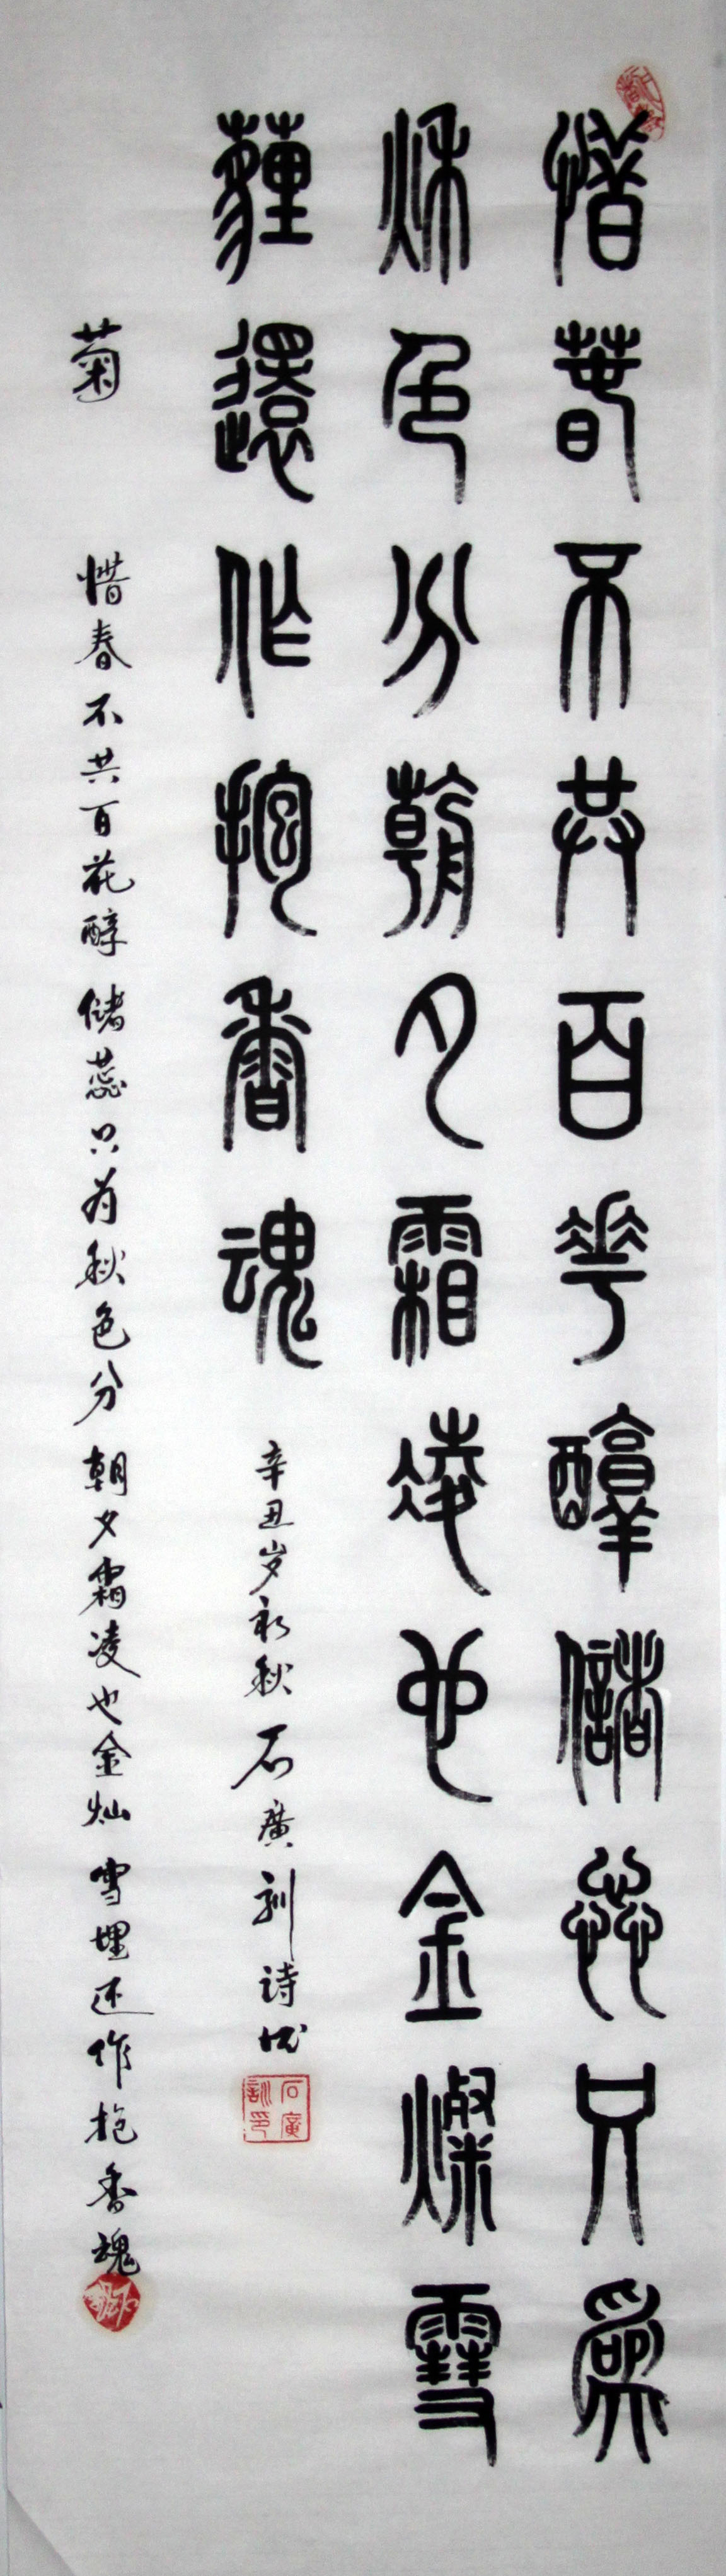 惜春不共百花醇儲蕊只為
秋色分朝夕霜凌也金燦雪
薶還作抱香魂
辛丑岁初秋石廣訓诗
石廣訓印
菊 惜春不共百花醇 储蕊只为秋色分 朝夕霜凌也金灿 雪埋还作抱香魂